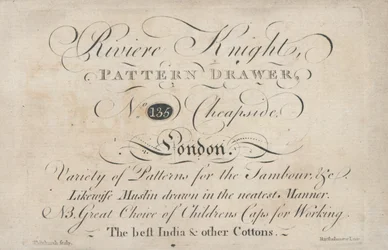 Riviere Knight,
PATTERN DRAWER,
No. 135 Cheapside
London.
Variety of Patterns for the Tambour, &c.
Likewiſe Muſlin drawn in the neatest Manner.
NB. Great Choice of Childrens Caps for Working.
The beſt India & other Cottons.